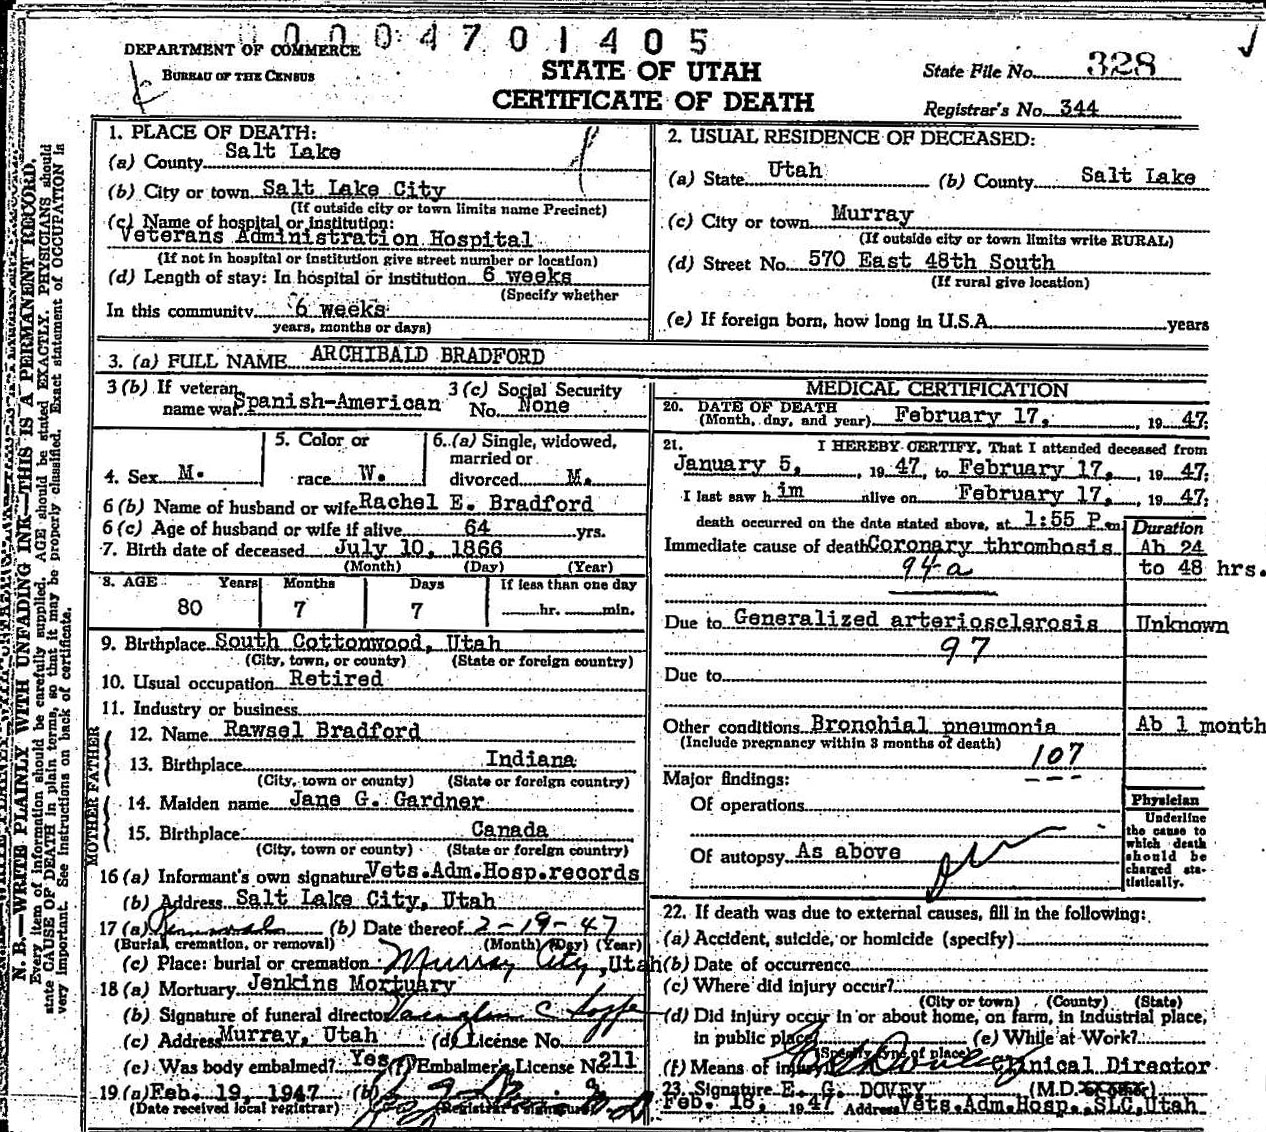 0004701405
DEPARTMENT OF COMMERCE
BUREAU OF THE CENSUS
STATE OF UTAH
CERTIFICATE OF DEATH
State File No. 328
Registrar's No. 344
1. PLACE OF DEATH:
(a) County Salt Lake
(b) City or town Salt Lake City
(If outside city or town limits name Precinct)
(c) Name of hospital or institution:
Veterans Administration Hospital
(If not in hospital or institution give street number or location)
(d) Length of stay: In hospital or institution 6 weeks
(Specify whether
In this community 6 weeks
years, months or days)
2. USUAL RESIDENCE OF DECEASED:
(a) State Utah (b) County Salt Lake
(c) City or town Murray
(If outside city or town limits write RURAL)
(d) Street No. 570 East 48th South
(If rural give location)
(e) If foreign born, how long in U.S.A. years
3. (a) FULL NAME ARCHIBALD BRADFORD
3 (b) If veteran name war Spanish-American
3 (c) Social Security No. None
4. Sex M.
5. Color or race W.
6. (a) Single, widowed, married or divorced M.
6 (b) Name of husband or wife Rachel E. Bradford
6 (c) Age of husband or wife if alive 64 yrs.
7. Birth date of deceased July 10, 1866
(Month) (Day) (Year)
8. AGE Years Months Days If less than one day
80 7 7 hr. min.
9. Birthplace South Cottonwood, Utah
(City, town, or county) (State or foreign country)
10. Usual occupation Retired
11. Industry or business
FATHER
12. Name Rawsel Bradford
13. Birthplace Indiana
(City, town or county) (State or foreign country)
MOTHER
14. Maiden name Jane G. Gardner
15. Birthplace Canada
(City, town or county) (State or foreign country)
16 (a) Informant's own signature Vets.Adm.Hosp.records
(b) Address Salt Lake City, Utah
17 (a) Removal (b) Date thereof 2-19-47
(Burial, cremation, or removal) (Month) (Day) (Year)
(c) Place: burial or cremation Murray City, Utah
18 (a) Mortuary Jenkins Mortuary
(b) Signature of funeral director
(c) Address Murray, Utah (d) License No.
(e) Was body embalmed? Yes (f) Embalmer's License No. 211
19 (a) Feb. 19, 1947 (b)
(Date received local registrar) (Registrar's signature)
MEDICAL CERTIFICATION
20. DATE OF DEATH
(Month, day, and year) February 17, 1947.
21. I HEREBY CERTIFY, That I attended deceased from
January 5, 1947, to February 17, 1947.
I last saw him alive on February 17, 1947.
death occurred on the date stated above, at 1:55 P m.
Duration
Immediate cause of death Coronary thrombosis Ab 24
94a to 48 hrs.
Due to Generalized arteriosclerosis Unknown
97
Due to
Other conditions Bronchial pneumonia Ab 1 month
(Include pregnancy within 3 months of death)
107
Major findings:
Of operations
Of autopsy As above
Physician
Underline
the cause to
which death
should be
charged sta-
tistically.
22. If death was due to external causes, fill in the following:
(a) Accident, suicide, or homicide (specify)
(b) Date of occurrence
(c) Where did injury occur?
(City or town) (County) (State)
(d) Did injury occur in or about home, on farm, in industrial place,
in public place (e) While at Work?
(Specify type of place)
(f) Means of injury Clinical Director
23. Signature E. G. DOVEY (M.D.
Feb. 18, 1947 Address Vets.Adm.Hosp., SLC, Utah
N. B.—WRITE PLAINLY WITH UNFADING INK—THIS IS A PERMANENT RECORD.
Every item of information should be carefully supplied. AGE should be stated EXACTLY. PHYSICIANS should
state CAUSE OF DEATH in plain terms, so that it may be properly classified. Exact statement of OCCUPATION is
very important. See instructions on back of certificate.